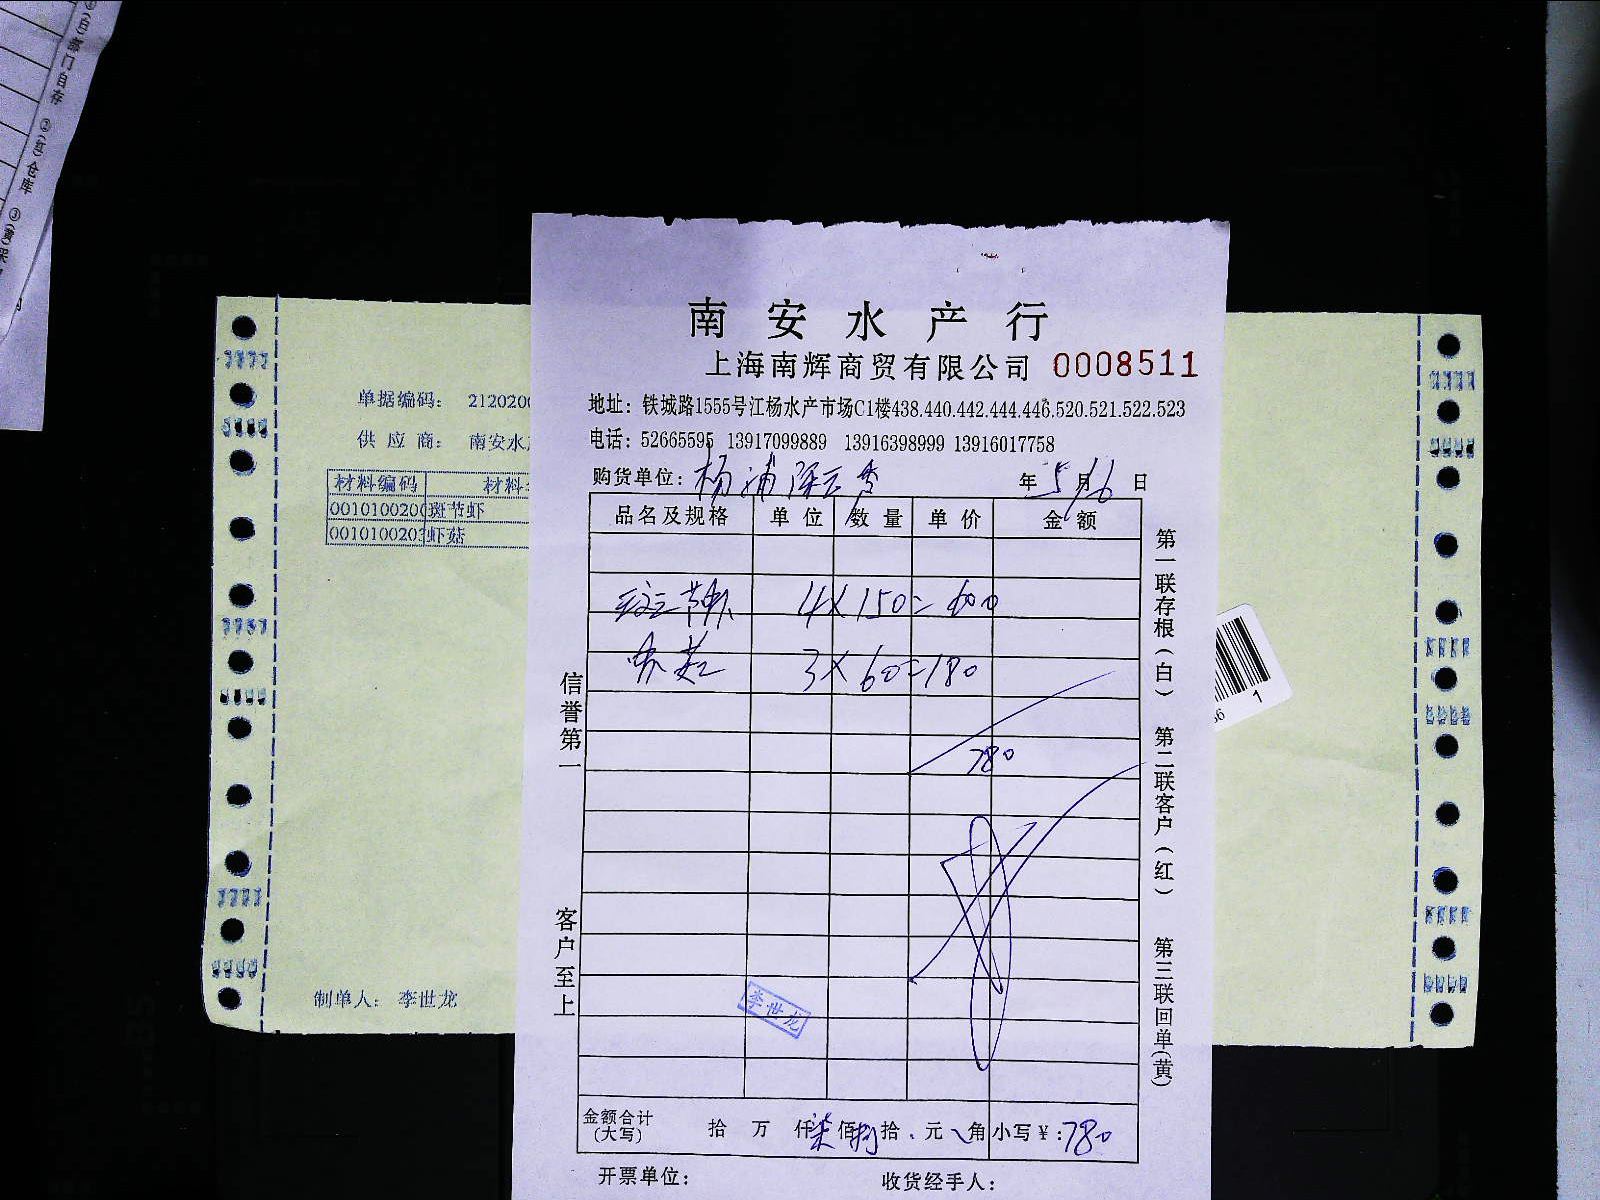 (白)部门自存 ②(红)仓库 ③(黄)
南安水产行
上海南辉商贸有限公司 0008511
地址：铁城路1555号江杨水产市场C1楼438.440.442.444.446.520.521.522.523
电话：52665595 13917099889 13916398999 13916017758
购货单位：杨浦 年5月16日
品名及规格 单位 数量 单价 金额
节虾 4×150=600
虾菇 3×60=180
780
李世龙
金额合计(大写) 拾 万 仟柒佰捌拾 元 角 小写￥:780
开票单位： 收货经手人：
信誉第一
客户至上
第一联存根(白) 第二联客户(红) 第三联回单(黄)
单据编码： 2120200
供应商： 南安水
材料编码 材料
0010100200 斑节虾
001010020 虾菇
制单人： 李世龙
56 1